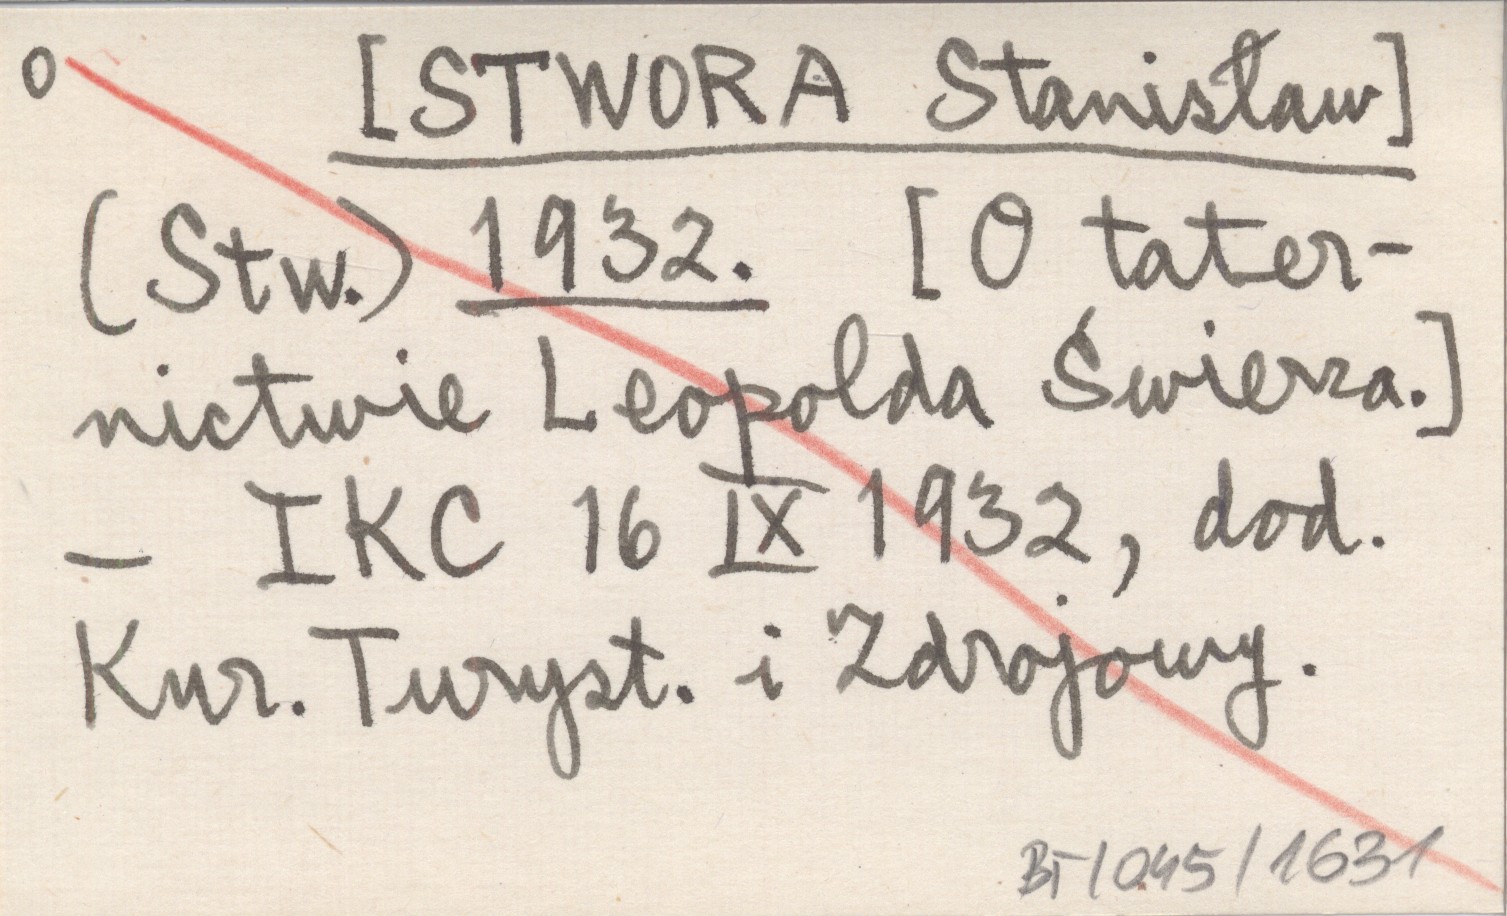 o [STWORA Stanisław]
(Stw.) 1932. [O tater-
nictwie Leopolda Świerza.]
— IKC 16 IX 1932, dod.
Kur. Turyst. i Zdrojowy.
BT/045/1631